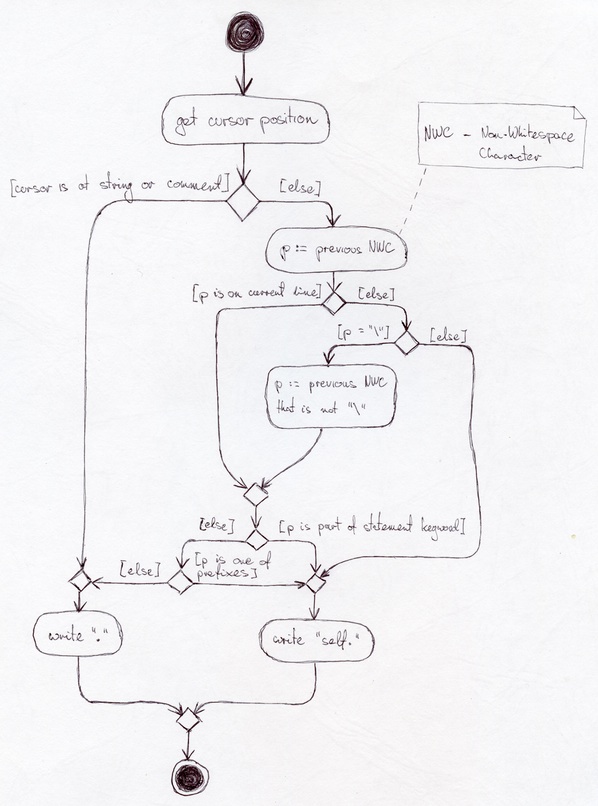 get cursor position
NWC - Non-Whitespace
Character
[cursor is at string or comment]
[else]
p := previous NWC
[p is on current line]
[else]
[p = "\"]
[else]
p := previous NWC
that is not "\"
[else]
[p is part of statement keyword]
[else]
[p is one of
prefixes]
write "."
write "self."